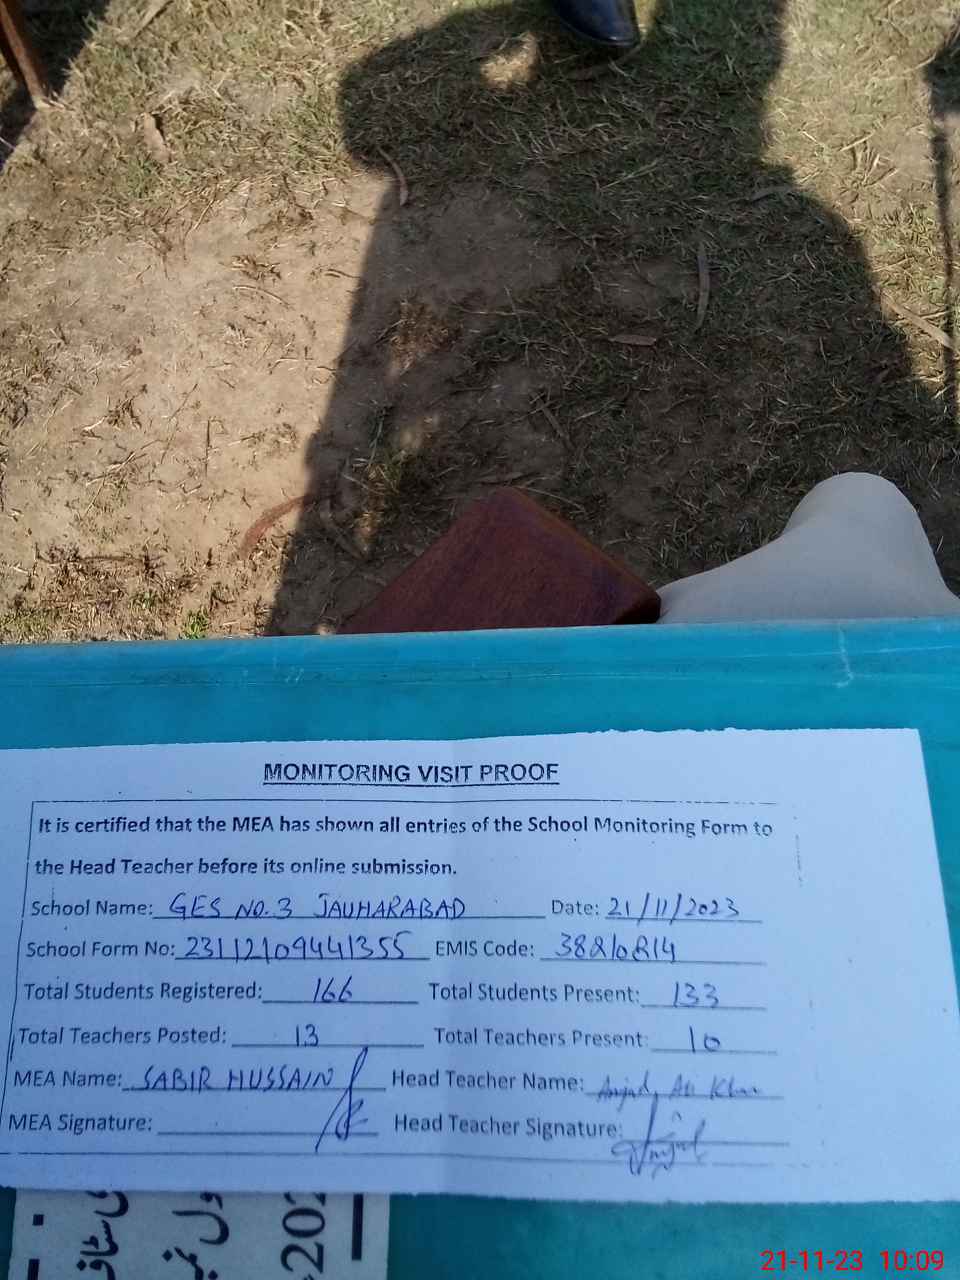 MONITORING VISIT PROOF
It is certified that the MEA has shown all entries of the School Monitoring Form to
the Head Teacher before its online submission.
School Name: GES NO.3 JAUHARABAD Date: 21/11/2023
School Form No: 23112109441355 EMIS Code: 38210814
Total Students Registered: 166 Total Students Present: 133
Total Teachers Posted: 13 Total Teachers Present: 10
MEA Name: SABIR HUSSAIN Head Teacher Name: Amjad Ali Khan
MEA Signature: Head Teacher Signature:
202
21-11-23 10:09